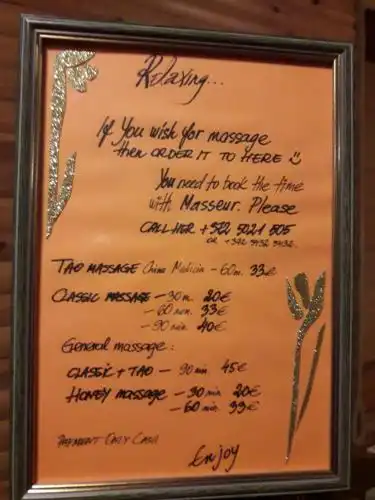 Relaxing...
If You wish for massage
then ORDER IT TO HERE
You need to book the time
with Masseur. Please
CALL HER +522 5021 505
OR
TAO MASSAGE China Medicin - 60m. 33€
CLASSIC MASSAGE - 30m. 20€
- 60 min. 33€
- 90 min. 40€
General massage:
CLASSIC + TAO - 90 min. 45€
HONEY massage - 30 min. 20€
- 60 min. 33€
PAYMENT ONLY CASH
Enjoy